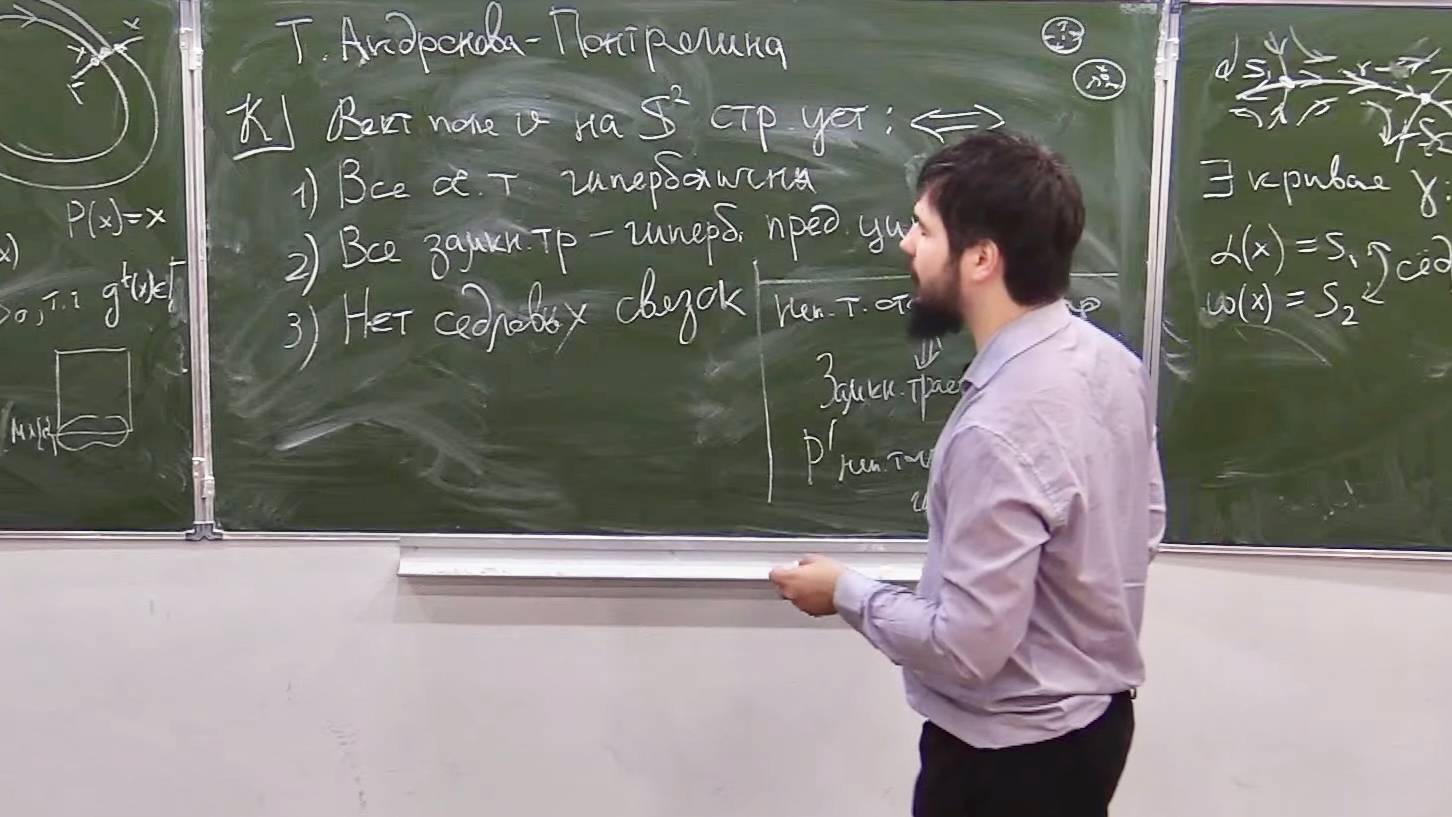 P(x)=x
g^t(x)∈Γ
Т. Андронова-Понтрягина
К] Вект поле v на S² стр. уст: ⟺
1) Все ос. т. гиперболичны
2) Все замкн. тр – гиперб. пред. ци
3) Нет седловых связок
Неп. т. от
Замкн. трае
P' неп. т
S₁
S₂
∃ кривая γ:
α(x) = S₁
ω(x) = S₂
сед